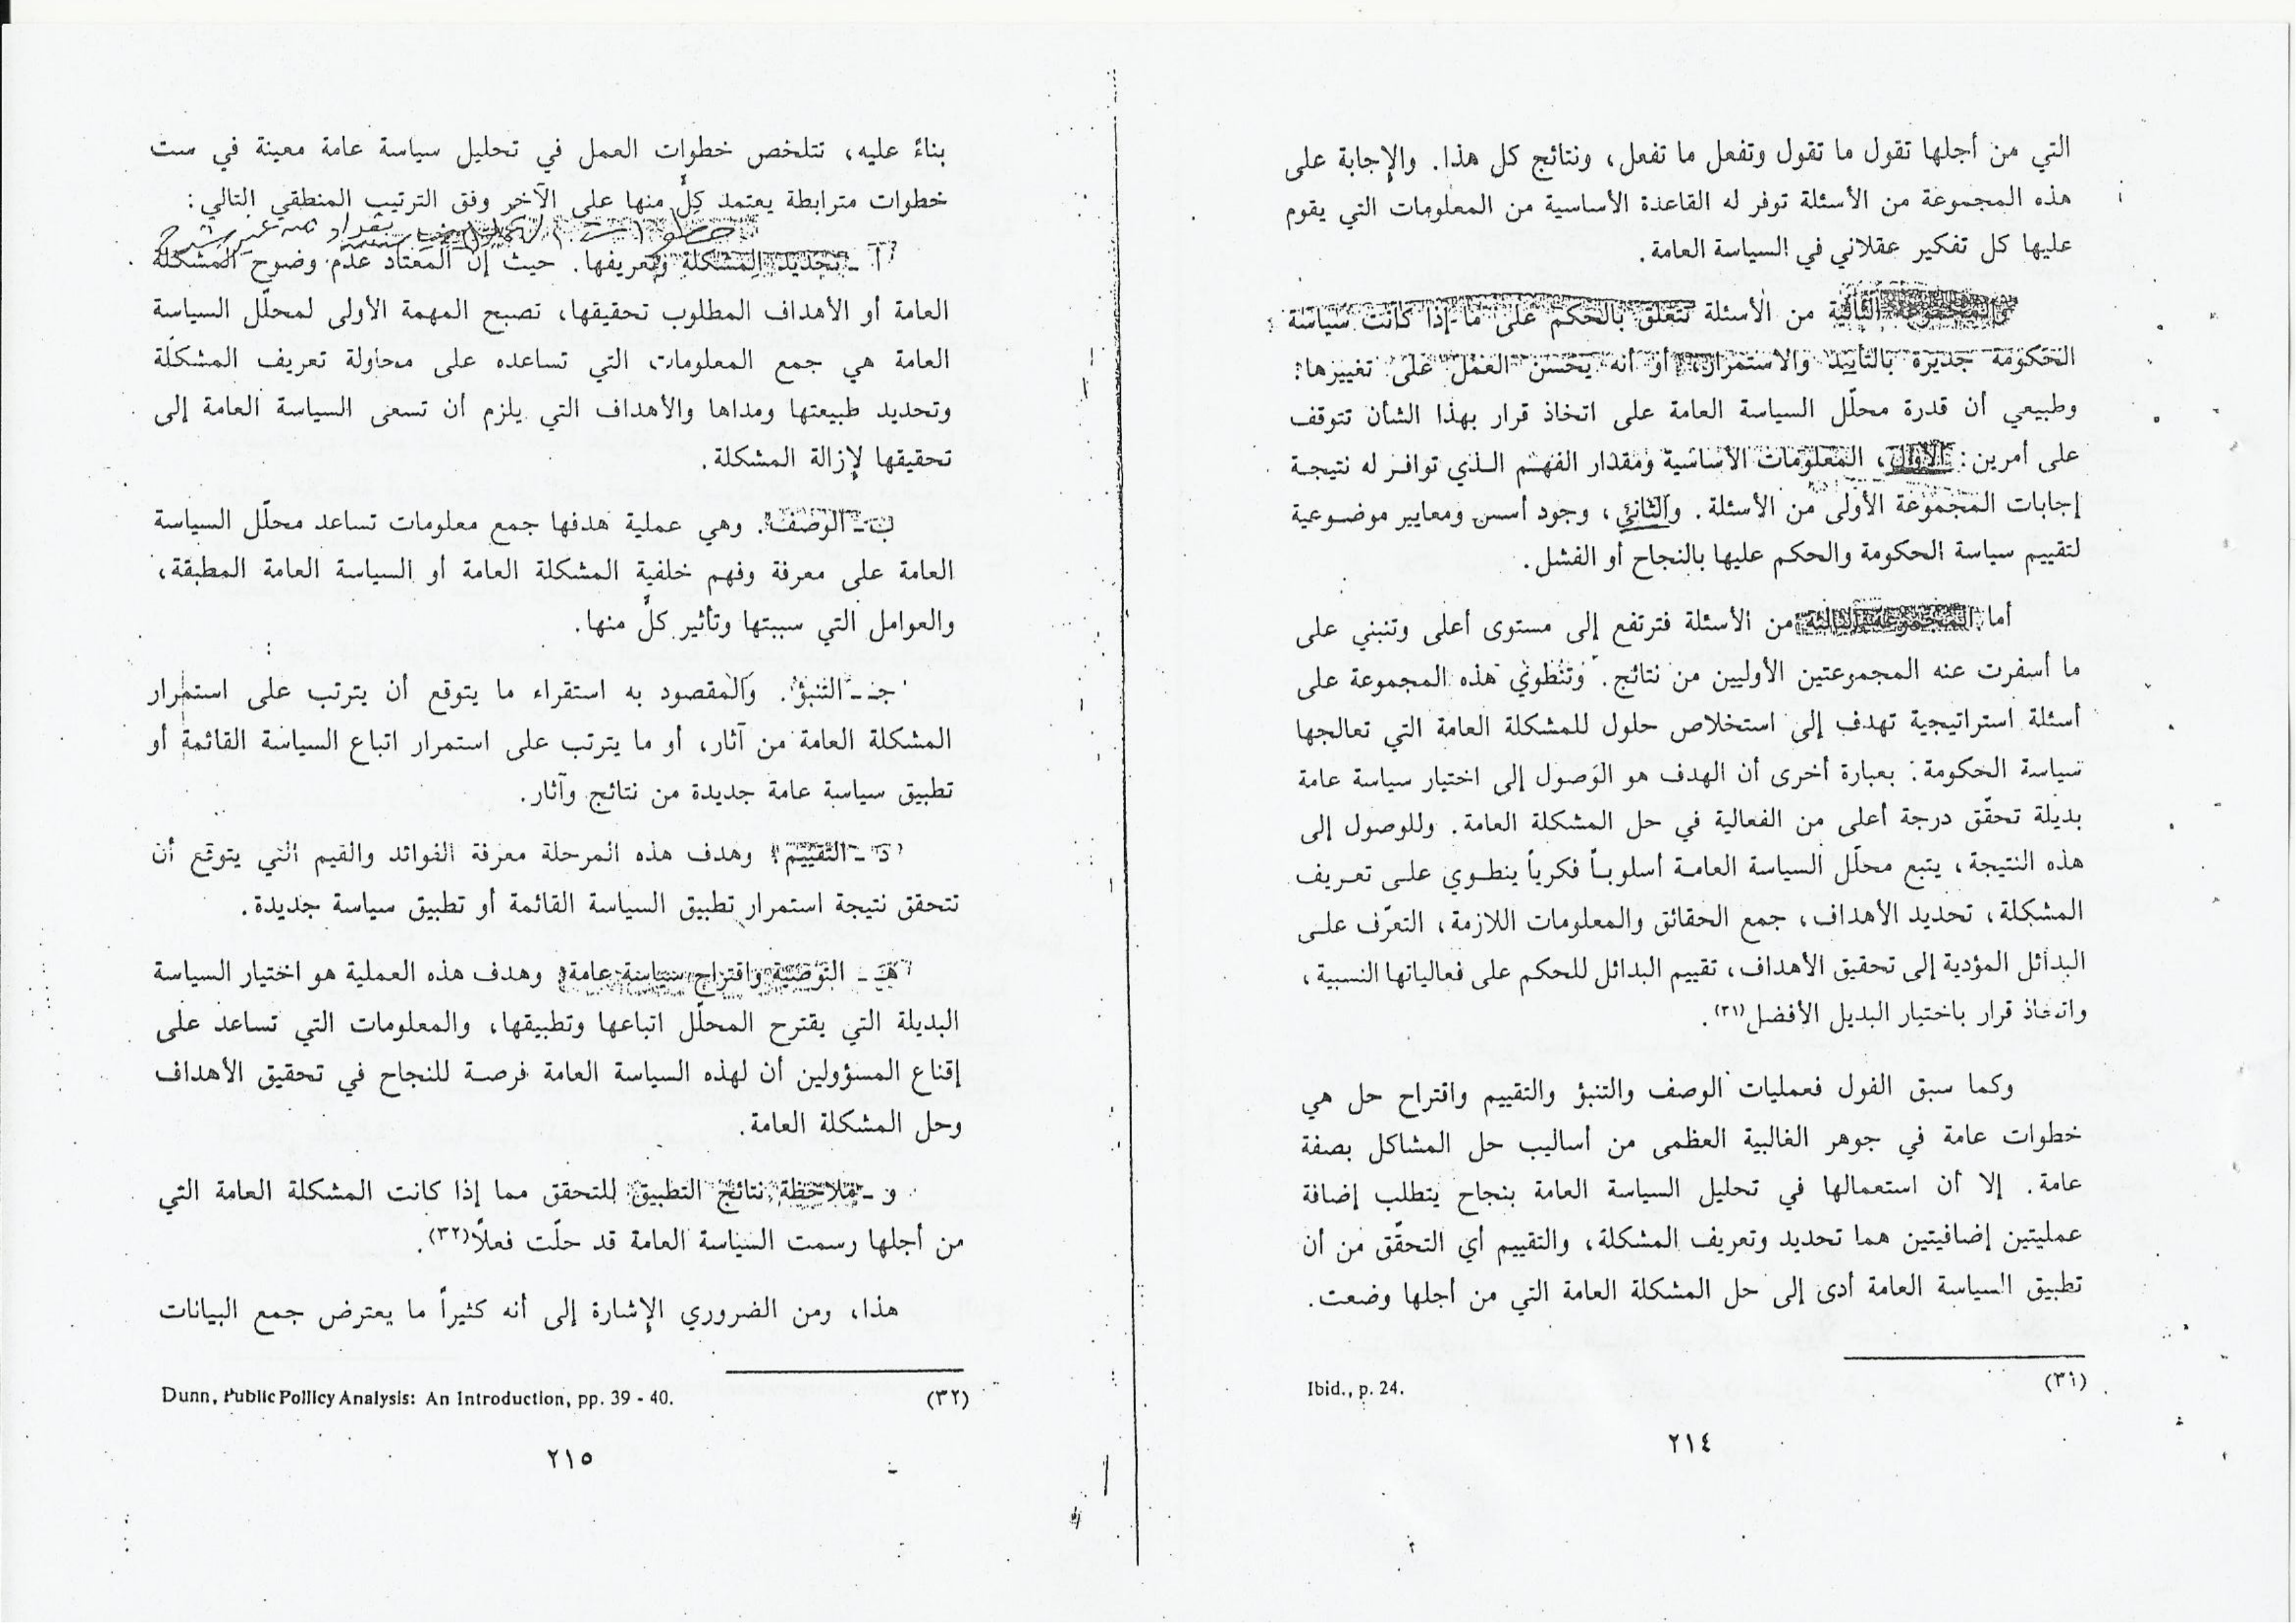 التي من أجلها تقول ما تقول وتفعل ما تفعل، ونتائج كل هذا. والإجابة على
هذه المجموعة من الأسئلة توفر له القاعدة الأساسية من المعلومات التي يقوم
عليها كل تفكير عقلاني في السياسة العامة.
والمجموعة الثانية من الأسئلة تتعلق بالحكم على ما إذا كانت سياسة
الحكومة جديرة بالتأييد والاستمرار، أو أنه يحسن العمل على تغييرها:
وطبيعي أن قدرة محلّل السياسة العامة على اتخاذ قرار بهذا الشأن تتوقف
على أمرين: الأول، المعلومات الأساسية ومقدار الفهم الذي توافر له نتيجة
إجابات المجموعة الأولى من الأسئلة. والثاني، وجود أسس ومعايير موضوعية
لتقييم سياسة الحكومة والحكم عليها بالنجاح أو الفشل.
أما المجموعة الثالثة من الأسئلة فترتفع إلى مستوى أعلى وتنبني على
ما أسفرت عنه المجموعتين الأوليين من نتائج. وتنطوي هذه المجموعة على
أسئلة استراتيجية تهدف إلى استخلاص حلول للمشكلة العامة التي تعالجها
سياسة الحكومة: بعبارة أخرى أن الهدف هو الوصول إلى اختيار سياسة عامة
بديلة تحقّق درجة أعلى من الفعالية في حل المشكلة العامة. وللوصول إلى
هذه النتيجة، يتبع محلّل السياسة العامة أسلوباً فكرياً ينطوي على تعريف
المشكلة، تحديد الأهداف، جمع الحقائق والمعلومات اللازمة، التعرّف على
البدائل المؤدية إلى تحقيق الأهداف، تقييم البدائل للحكم على فعالياتها النسبية،
واتخاذ قرار باختيار البديل الأفضل(٣١).
وكما سبق القول فعمليات الوصف والتنبؤ والتقييم واقتراح حل هي
خطوات عامة في جوهر الغالبية العظمى من أساليب حل المشاكل بصفة
عامة. إلا أن استعمالها في تحليل السياسة العامة بنجاح يتطلب إضافة
عمليتين إضافيتين هما تحديد وتعريف المشكلة، والتقييم أي التحقّق من أن
تطبيق السياسة العامة أدى إلى حل المشكلة العامة التي من أجلها وضعت.
(٣١) Ibid., p. 24.
٢١٤
بناءً عليه، تتلخص خطوات العمل في تحليل سياسة عامة معينة في ست
خطوات مترابطة يعتمد كلٌّ منها على الآخر وفق الترتيب المنطقي التالي:
أ - تحديد المشكلة وتعريفها. حيث إن المعتاد عدم وضوح المشكلة
العامة أو الأهداف المطلوب تحقيقها، تصبح المهمة الأولى لمحلّل السياسة
العامة هي جمع المعلومات التي تساعده على محاولة تعريف المشكلة
وتحديد طبيعتها ومداها والأهداف التي يلزم أن تسعى السياسة العامة إلى
تحقيقها لإزالة المشكلة.
ب - الوصف. وهي عملية هدفها جمع معلومات تساعد محلّل السياسة
العامة على معرفة وفهم خلفية المشكلة العامة أو السياسة العامة المطبقة،
والعوامل التي سببتها وتأثير كلٌّ منها.
جـ - التنبؤ. والمقصود به استقراء ما يتوقع أن يترتب على استمرار
المشكلة العامة من آثار، أو ما يترتب على استمرار اتباع السياسة القائمة أو
تطبيق سياسة عامة جديدة من نتائج وآثار.
د - التقييم. وهدف هذه المرحلة معرفة الفوائد والقيم التي يتوقع أن
تتحقق نتيجة استمرار تطبيق السياسة القائمة أو تطبيق سياسة جديدة.
هـ - التوصية واقتراح سياسة عامة. وهدف هذه العملية هو اختيار السياسة
البديلة التي يقترح المحلّل اتباعها وتطبيقها، والمعلومات التي تساعد على
إقناع المسؤولين أن لهذه السياسة العامة فرصة للنجاح في تحقيق الأهداف
وحل المشكلة العامة.
و - ملاحظة نتائج التطبيق للتحقق مما إذا كانت المشكلة العامة التي
من أجلها رسمت السياسة العامة قد حلّت فعلاً(٣٢).
هذا، ومن الضروري الإشارة إلى أنه كثيراً ما يعترض جمع البيانات
(٣٢) Dunn, Public Pollicy Analysis: An Introduction, pp. 39 - 40.
٢١٥